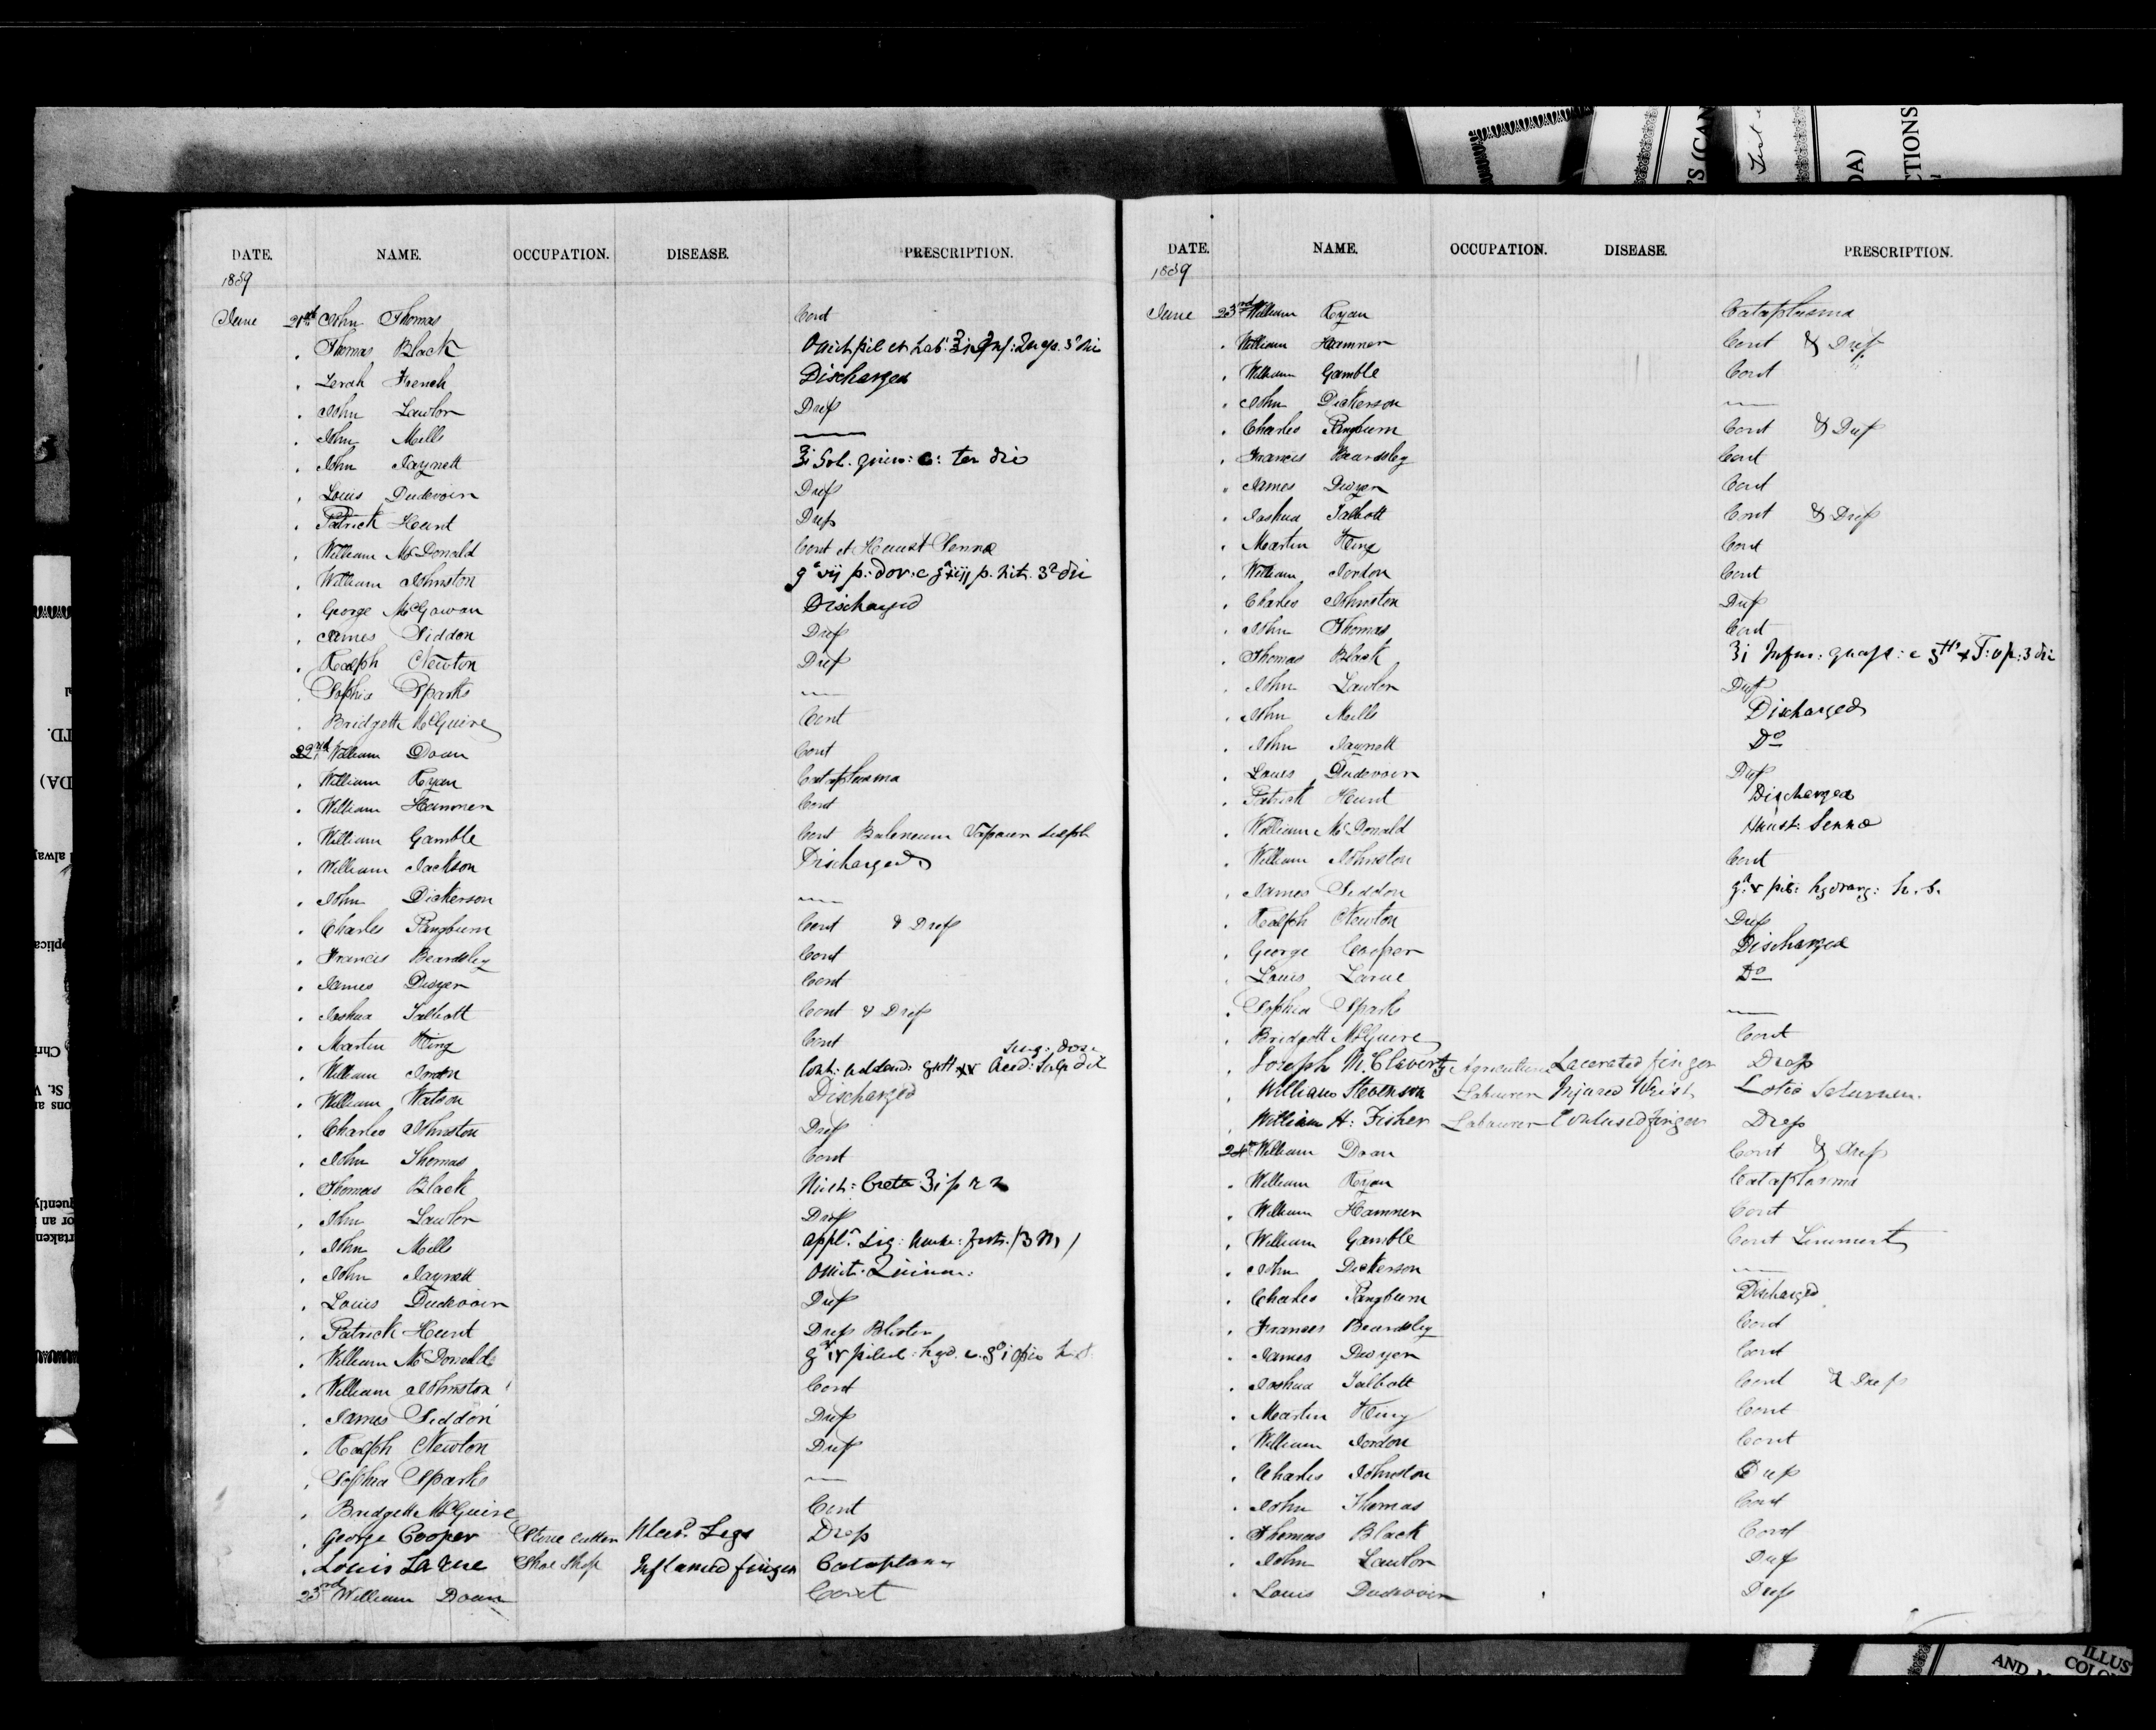 DATE. NAME. OCCUPATION. DISEASE. PRESCRIPTION.
1889
June 21st John Thomas Cont
Thomas Black Omit pil et hab: ʒi Inf: 3 die
Lerah French Discharged
John Lawlor Dress
John Mills
John Jaynett ʒi Sol. quin: c: ter die
Louis Dudevoir Dress
Patrick Hunt Dress
William McDonald Cont et Haust Senna
William Johnston gr vij p: dov: c gr p. nit. 3 die
George McGowan Discharged
James Siddon Dress
Ralph Newton Dress
Sophia Sparks
Bridgette McGuire Cont
22nd William Doan Cont
William Ryan Cataplasma
William Hamner Cont
William Gamble Cont Balneum Vapour Sulph
William Jackson Discharged
John Dickerson
Charles Pangburn Cont & Dress
Francis Beardsley Cont
James Dwyer Cont
Joshua Talbott Cont & Dress
Martin King Cont
William Jordon Cont: addend: gutt xv Acid: Sulp dil sing: dose
William Watson Discharged
Charles Johnston Dress
John Thomas Cont
Thomas Black Mist: Creta ʒi p r n
John Lawlor Dress
John Mills appl.
John Jaynett Omit Quinin:
Louis Dudevoir Dress
Patrick Hunt Dress Blister
William McDonald gr iv pilul: hyd. c. gr i opio
William Johnston Cont
James Siddon Dress
Ralph Newton Dress
Sophia Sparks
Bridgette McGuire Cont
George Cooper Stone cutter Ulcer. Legs Dress
Louis Larue Shoe Shop Inflamed finger Cataplasm
23rd William Doan Cont
DATE. NAME. OCCUPATION. DISEASE. PRESCRIPTION.
1889
June 23rd William Ryan Cataplasma
William Hamner Cont & Dress
William Gamble Cont
John Dickerson
Charles Pangburn Cont & Dress
Francis Beardsley Cont
James Dwyer Cont
Joshua Talbott Cont & Dress
Martin King Cont
William Jordon Cont
Charles Johnston Dress
John Thomas Cont
Thomas Black ʒi Infus: quass: c gtts x T: op: 3 die
John Lawlor Dress
John Mills Discharged
John Jaynett Do
Louis Dudevoir Dress
Patrick Hunt Discharged
William McDonald Haust: Senna
William Johnston Cont
James Siddon gr v pil: hydrarg: h. s.
Ralph Newton Dress
George Cooper Discharged
Louis Larue Do
Sophia Sparks
Bridgett McGuire Cont
Joseph McClaverty Lacerated finger Dress
William Stevenson Labourer Injured Wrist Lotio
William H: Fisher Labourer Contused finger Dress
24th William Doan Cont & Dress
William Ryan Cataplasma
William Hamner Cont
William Gamble Cont Liniment
John Dickerson
Charles Pangburn Discharged
Frances Beardsley Cont
James Dwyer Cont
Joshua Talbott Cont & Dress
Martin King Cont
William Jordon Cont
Charles Johnston Dress
John Thomas Cont
Thomas Black Cont
John Lawlor Dress
Louis Dudevoir Dress